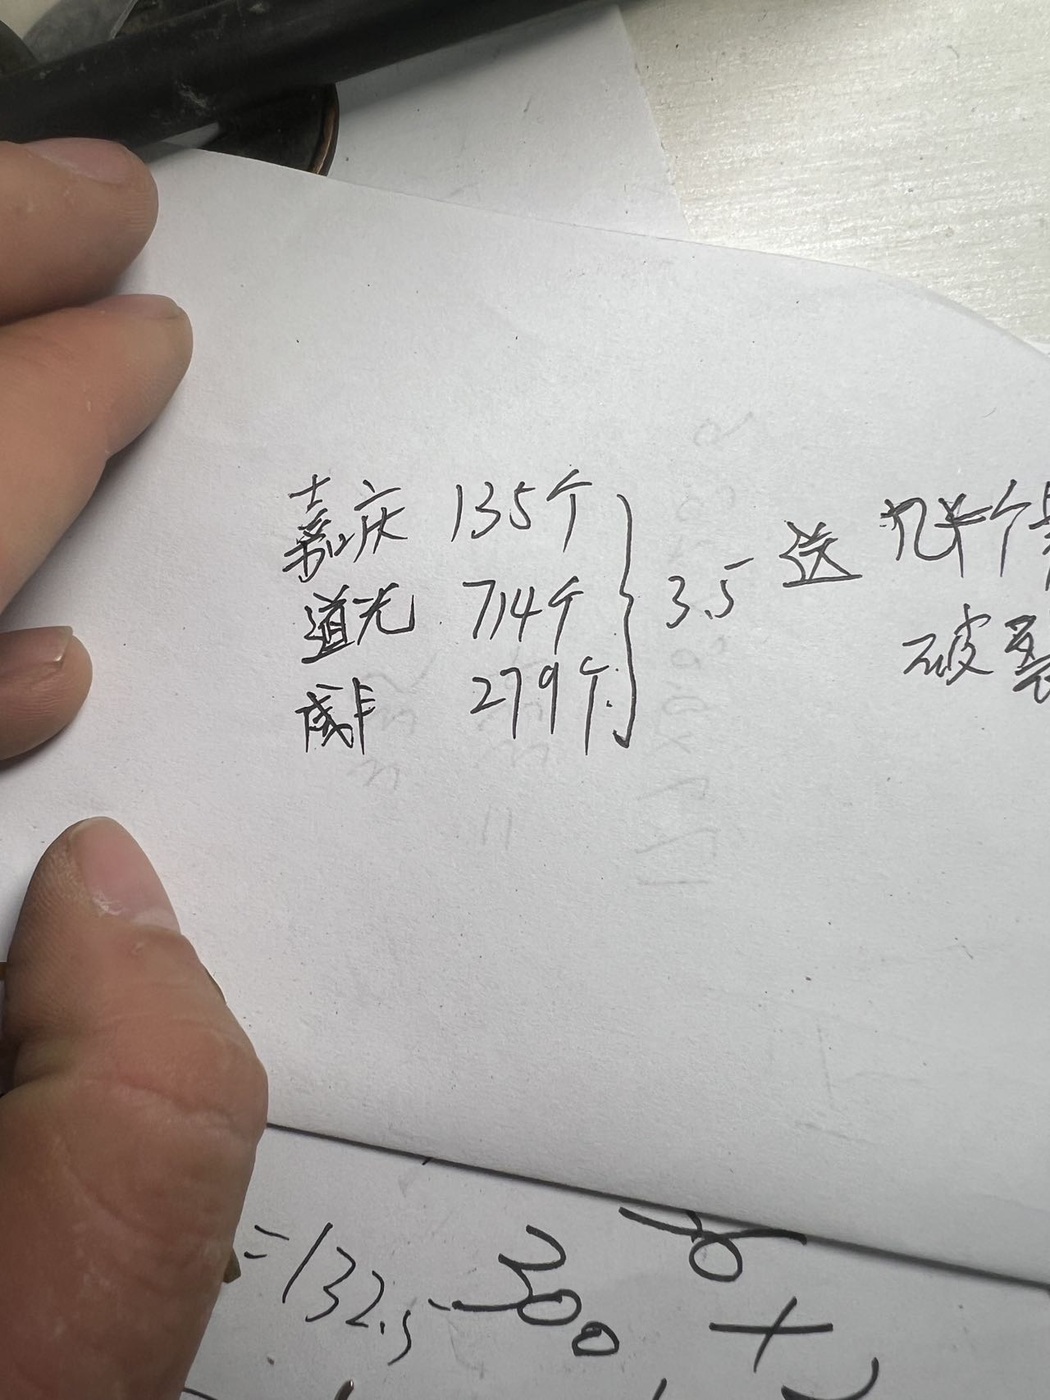 嘉庆 135个
道光 714个
咸丰 279个
} 3.5 送 几十个
破裂
=132.5
300
+